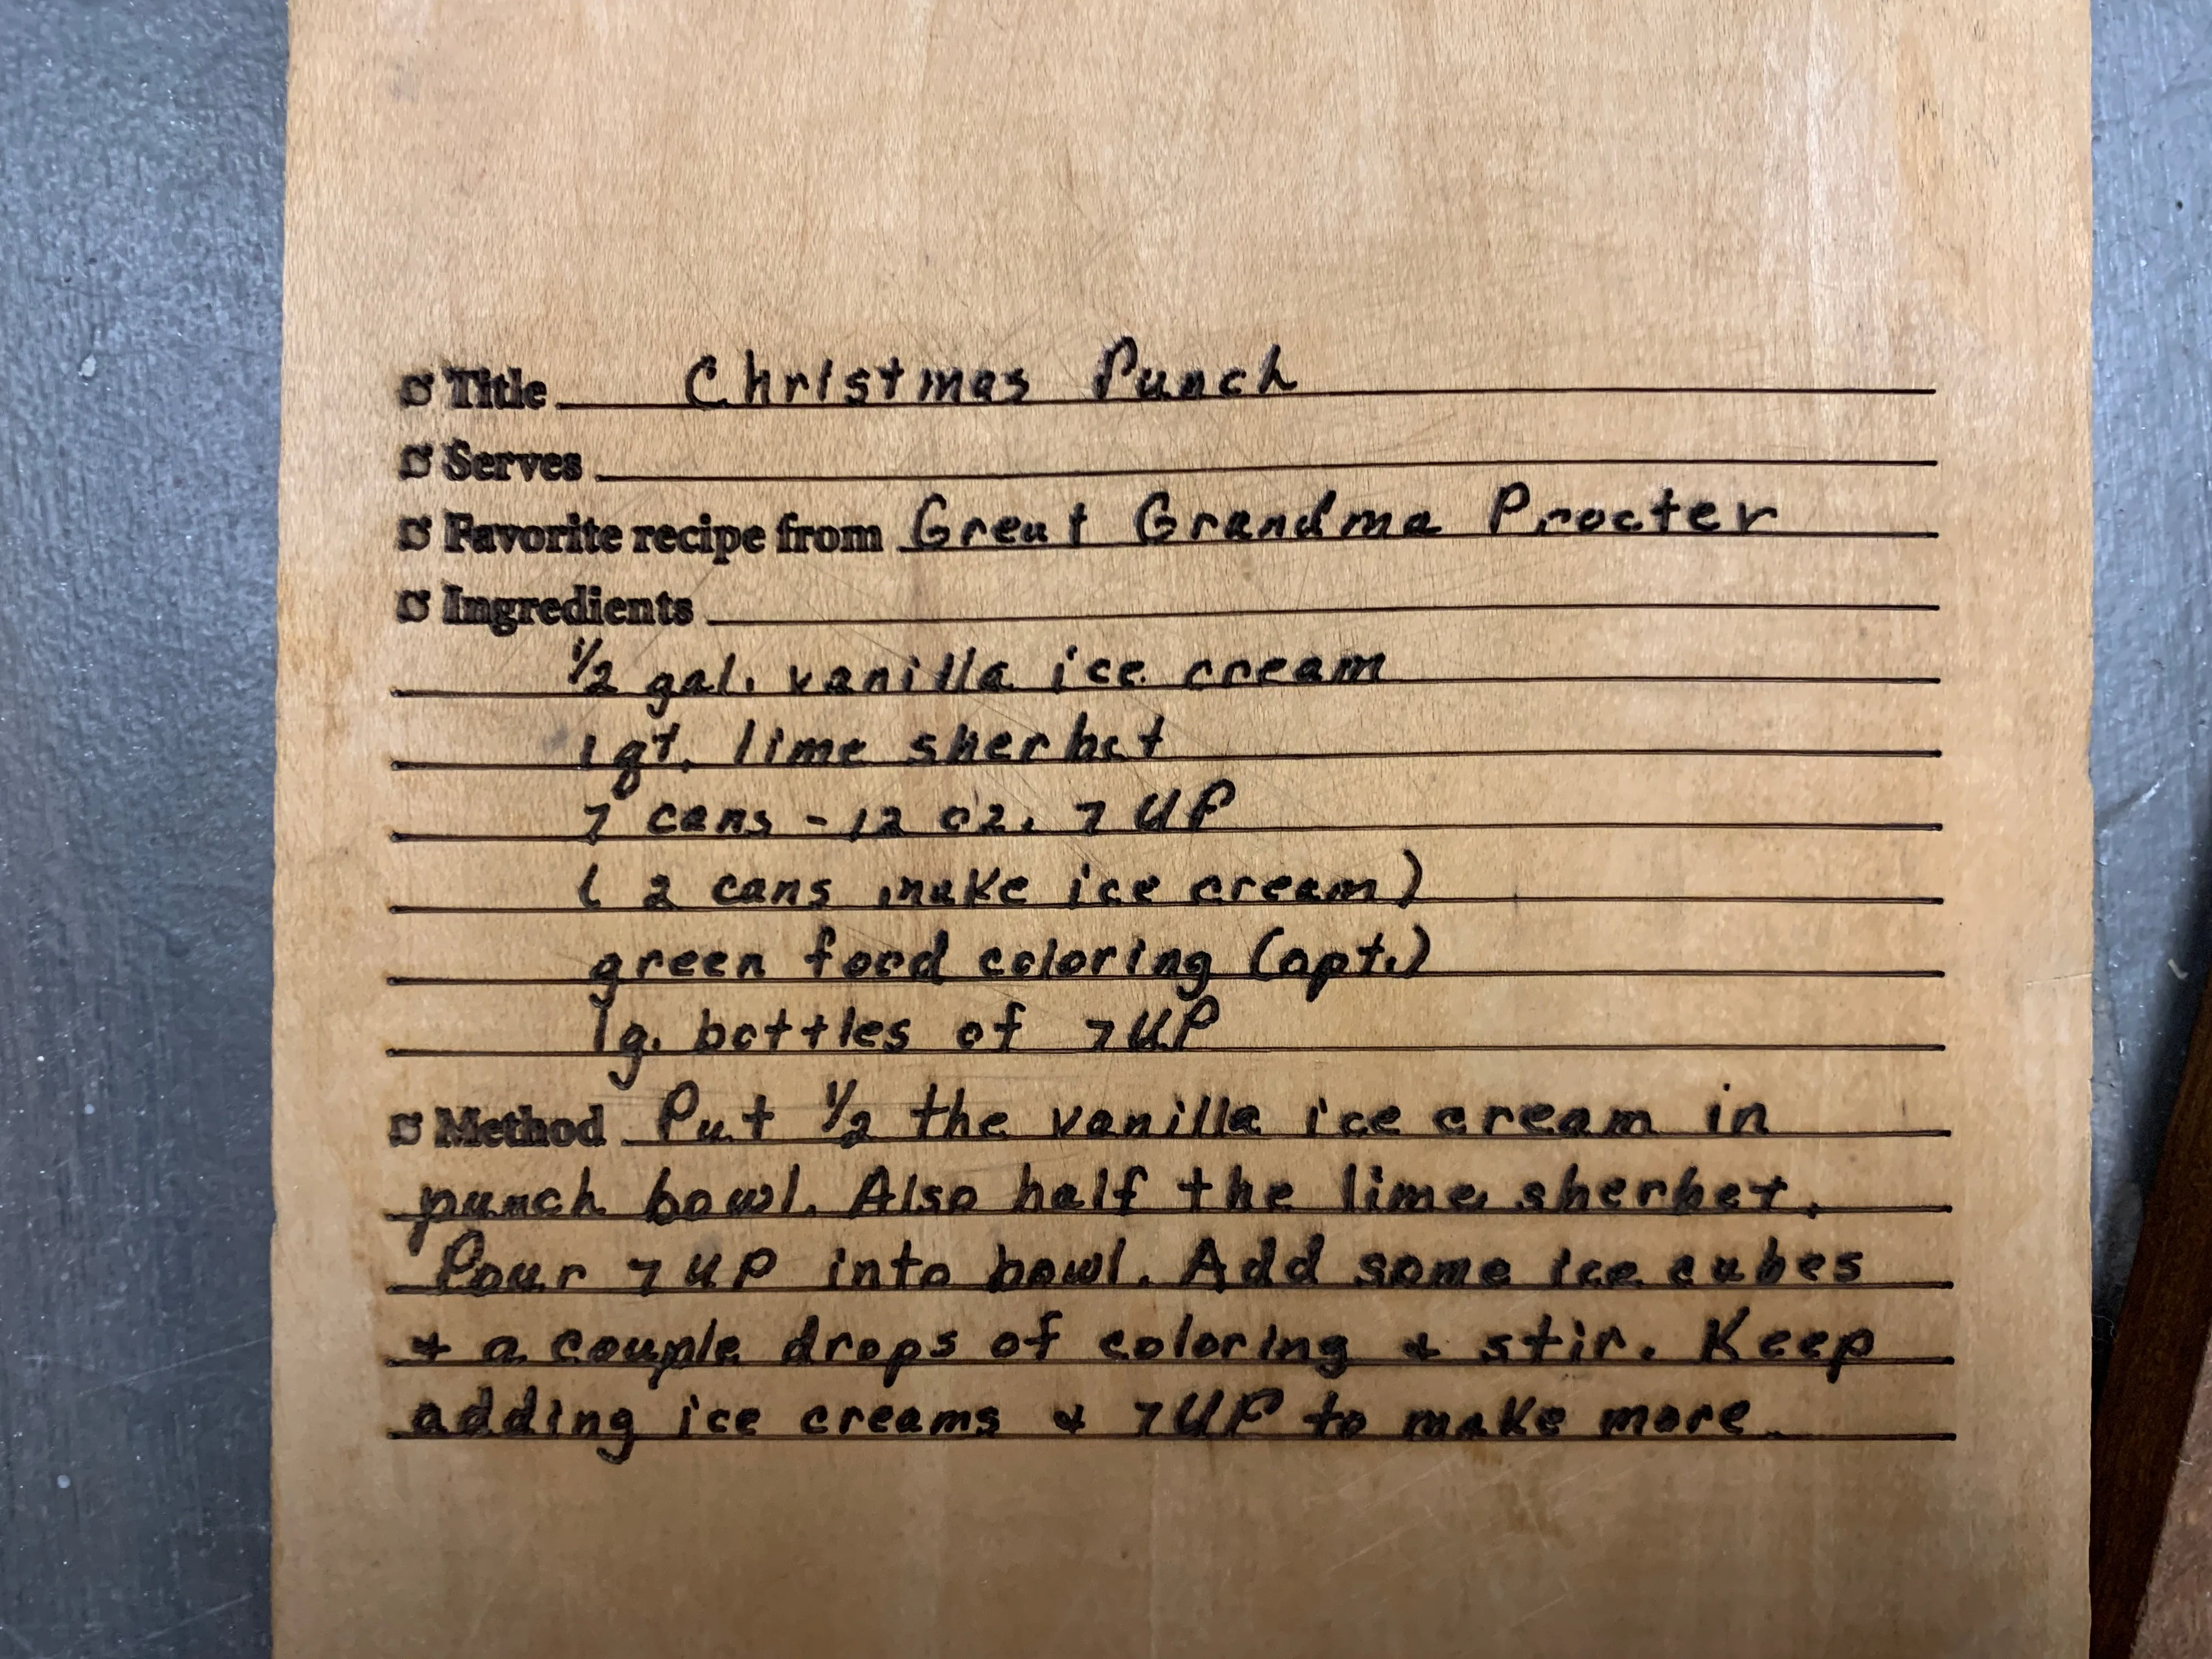 Title Christmas Punch
Serves
Favorite recipe from Great Grandma Procter
Ingredients
1/2 gal. vanilla ice cream
1 qt. lime sherbet
7 cans - 12 oz. 7 UP
( 2 cans make ice cream)
green food coloring (opt.)
lg. bottles of 7UP
Method Put 1/2 the vanilla ice cream in
punch bowl. Also half the lime sherbet.
Pour 7UP into bowl. Add some ice cubes
+ a couple drops of coloring & stir. Keep
adding ice creams & 7UP to make more.